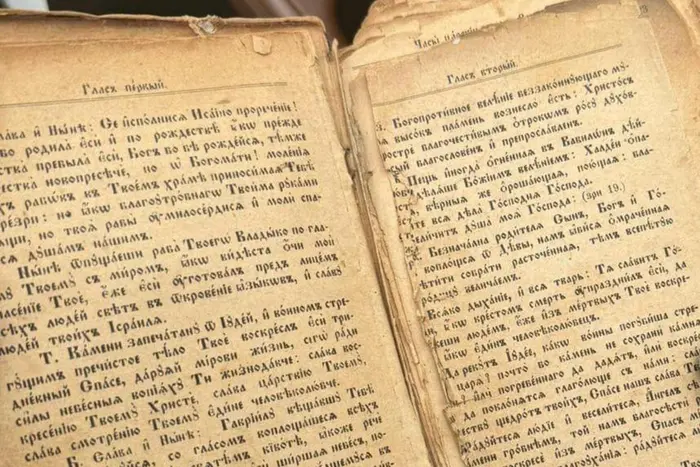 Гласъ первый.
лава и нынѣ: Се исполнися Исаино проречение!
во родила еси и по рождествѣ ꙗкω прежде
ства пребыла еси, Богъ бо бѣ рождейся, тѣмже
ества новопресѣче, но ѡ Богомати! моленія
хъ равωвъ въ Твоемъ храмѣ приносимая Тебѣ
презри: но ꙗкω благоутровнагω Твоима руками
щи, на твоя рабы ѹмилосердися и моли спа-
ся дꙋшамъ нашимъ.
Нынѣ ѿпꙋщаеши раба Твоегω Владыко по гла-
Твоемꙋ съ миромъ, ꙗкω видѣста очи мои
пасеніе Твое, еже еси ѹготовалъ предъ лицемъ
всѣхъ людей свѣтъ въ ѿкровеніе ꙗзыкωвъ, и славꙋ
людей твоихъ Ісраиля.
Т. Камени запечатанꙋ ѿ Іꙋдей, и воинωмъ стре-
гꙋщимъ пречистое тѣло Твое воскреслъ еси три-
дневный Спасе, дарꙋяй мірови жизнь, сегω ради
силы небесныя вопіяхꙋ Ти жизнодавче: слава вос-
кресенію Твоемꙋ Христе, слава царствію Твоемꙋ,
слава смотренію Твоемꙋ едине человѣколюбче.
Б. Слава и Нынѣ: Гавріилꙋ вѣщавшꙋ Тебѣ
дѣво радꙋйся, со гласомъ воплощашеся всѣхъ
въ Тебѣ святѣмъ кивотѣ, ꙗкоже рече
ширшая небесъ, по-
Часы
Гласъ вторый.
з. Богопротивное велѣніе беззаконнꙋющаго мꙋ-
высокъ пламень вознесло есть: Христосъ
простре благочестивымъ отрокωмъ росꙋ дꙋхов-
сый благословенъ и препрославенъ.
Пещь иногда огненная въ Вавилωнѣ дѣй-
раздѣляше Божіимъ велѣніемъ: Халдеи ѡпа-
вѣрныя же орошающая, поющыя: бла-
те вся дѣла Господня Господа.
Величитъ дꙋша моя Господа: (зри 19.)
Безначална родителя Сынъ, Богъ и Го-
воплощся ѿ Дѣвы, намъ ꙗвися ѡмраченная
свѣтити собрати расточенная, тѣмъ всепѣтꙋю
родицꙋ величаемъ.
Всяко дыханіе, и вся тварь: Тя славитъ Го-
ꙗкω крестомъ смерть ѹпразднилъ еси, да
кажеши людемъ, еже изъ мертвыхъ Твое воскре-
единъ человѣколюбецъ.
Да рекꙋтъ Іꙋдее, какω воини погꙋбиша стре-
царя? почто бо камень не сохрани камене
или погребеннаго да дадатъ, или воскресшꙋ
да поклонятся глаголюще съ нами: слава
ствꙋ щедротъ твоихъ, Спасе нашъ слава
Радꙋйтеся людіе и веселитеся, Ангелъ сѣ-
камени гробнѣмъ, той намъ благовѣсти рекъ:
воскресе изъ мертвыхъ, Спасъ